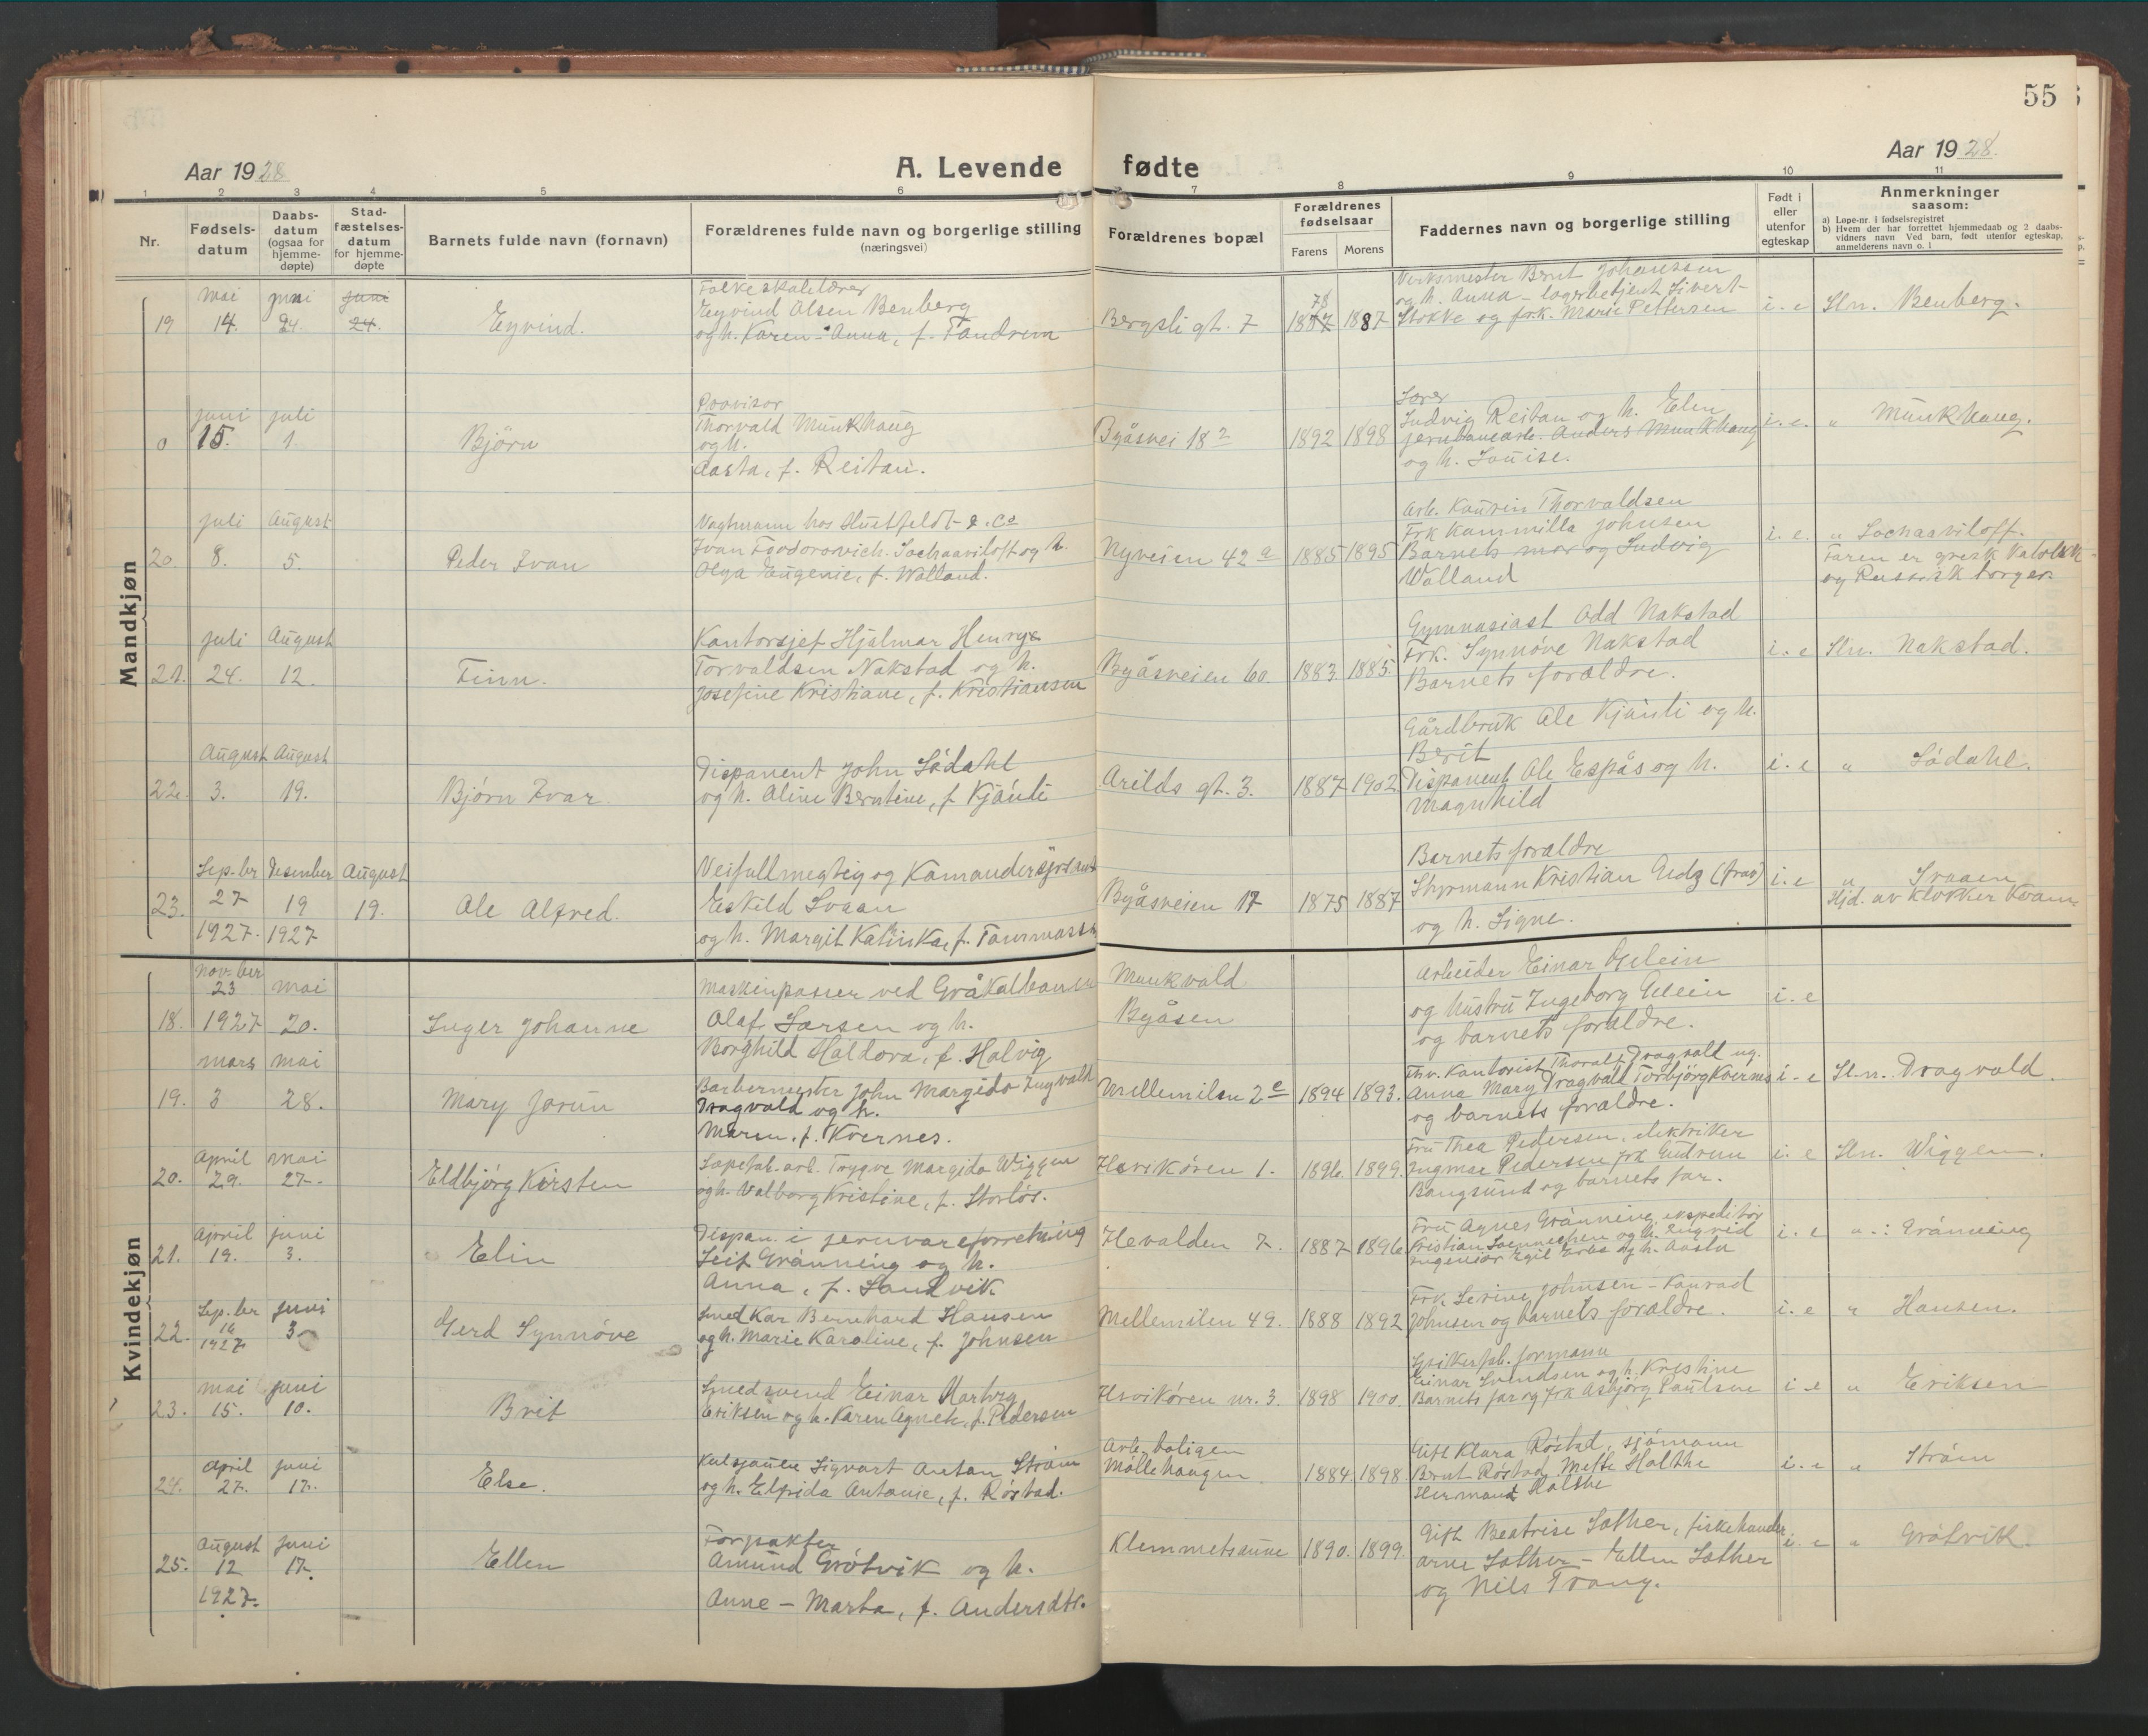 55
Aar 1928
A. Levende fødte
Aar 1928.
1 2 3 4 5 6 7 8 9 10 11
Nr.
Fødsels-
datum
Daabs-
datum
(ogsaa for
hjemme-
døpte)
Stad-
fæstelses-
datum
for hjemme-
døpte
Barnets fulde navn (fornavn)
Forældrenes fulde navn og borgerlige stilling
(næringsvei)
Forældrenes bopæl
Forældrenes
fødselsaar
Farens Morens
Faddernes navn og borgerlige stilling
Født i
eller
utenfor
egteskap
Anmerkninger
saasom:
a) Løpe-nr. i fødselsregistret
b) Hvem der har forrettet hjemmedaab og 2 daabs-
vidners navn Ved barn, født utenfor egteskap,
anmelderens navn o. l
Mandkjøn
19 mai 14. juni 24. juni 24. Eyvind.
Folkeskolelærer
Eyvind Olsen Benberg
og h. Karen-Anna, f. Tandrem
Bergsli gt. 7 78 1857 1887
Verksmester Bernt Johanssen
og h. Anna - lagerbetjent Sivert
Stokke og frk. Marie Pettersen
i. e Sln. Benberg.
0 juni 15. juli 1. Bjørn
Provisor
Thorvald Munkhaug
og h.
Aasta, f. Reitan.
Byåsvei 18 1892 1898
Lærer
Ludvig Reitan og h. Elin
jernbanearb. Anders Munkhaug
og h. Louise.
i. e. " Munkhaug.
20. juli 8. August 5. Peder Ivan
Vagtmann hos Huitfeldt & Co
Ivan Feodorovich Sochaaviloft og h.
Olga Eugenie, f. Walland.
Nyveien 42 a 1885 1895
Arb. Kaurin Thorvaldsen
Frk Kammilla Johnsen
Barnets mor og Ludvig
Walland
i. e. " Sochaaviloff.
Faren er gresk katolikk
og Russisk borger.
21. juli 24. August 12. Finn.
Kontorsjef Hjalmar Henry
Torvaldsen Nakstad og h.
Josefine Kristiane, f. Kristiansen
Byåsveien 60 1883 1885.
Gymnasiast Odd Nakstad
Frk. Synnøve Nakstad
Barnets forældre.
i. e Sln. Nakstad.
22. August 3. August 19. Bjørn Ivar
Disponent John Sødahl
og h. Aline Berntine, f. Kjønli
Arilds gt. 3. 1887 1902
Gårdbruk Ole Kjønli og h.
Berit
Disponent Ole Espås og h.
Magnhild
i. e " Sødahl.
23. Sep.ber 27 1927. Desember 19 1927 August 19. Ole Alfred.
Veifullmegtig og
Eskild Svaan
og h. Margit Katinka, f.
Byåsveien 17 1875 1887
Barnets forældre
Styrmann Kristian
og h. Signe.
i. e " Svaan
Hjd. av klokker Kvam
Kvindekjøn
18. nov.ber 23 1927 mai 20. Inger Johanne
Maskinpasser ved Gråkalbanen
Olaf Larsen og h.
Borghild Haldora, f. Halvig
Munkvold
Byåsen
Arbeider Einar
og hustru Ingeborg
og barnets forældre.
i. e
19. mars 3 mai 28. Mary Jorun
Barbermester John Margido Ingvald
Dragvold og h.
Maren, f. Kvernes.
Mellemilen 2 c 1894 1893.
Kontorist Thoralf Dragvold ug.
Anna Mary Dragvold Torbjørg Kvernes
og barnets forældre.
i. e Sln. Dragvold.
20. April 29. mai 27. Eldbjørg Kirsten
Sæpefab. arb. Trygve Margido Wiggen
og h. Valborg Kristine, f. Storløs.
Havikøren 1. 1896. 1899.
Fru Thea Pedersen, elektriker
Ingmar Pedersen frk Gudrun
Bangsund og barnets far.
i. e Sln. Wiggen.
21. April 19. juni 3. Elin
Dispon. i jernvareforretning
Leif Grønning og h.
Anna, f. Sandvik
Hevolden 7. 1887 1896
Fru Agnes Grønning ekspeditør
Kristian og h. Ingrid
Ingeniør Egil og h. Aasta
i. e " : Grønning
22. Sep.ber 1927 juni 3. Gerd Synnøve
Smed Kar Bernhard Hansen
og h. Marie Karoline, f. Johnsen
Mellemilen 49. 1888 1892
Frk. Serine Johnsen - Konrad
Johnsen og barnets forældre.
i. e " Hansen.
23. mai 15. juni 10. Brit
Smedsvend Einar Hartvig
Eriksen og h. Karen Agnete, f. Pedersen
Havikøren nr. 3. 1898 1900.
Spikerfab. formann
Einar Svendsen og h. Kristine
Barnets far og frk Asbjørg Paulsen
i. e " Eriksen
24. april 27. juni 17. Else.
Sigvart Anton Strøm
og h. Elfrida Antonie, f. Røstad.
Arb. boligen
Møllehaugen 1884. 1898.
Gift Klara Røstad, sjømann
Bernt Røstad, Mette Holthe
Hermand Holthe
i. e " Strøm
25. August 12 1927. juni 17. Ellen
Forpakter
Amund Grøtvik og h.
Anne - Marta, f. Andersdtr.
Klemmetsaune 1890. 1899.
Gift Beatrise Sæther, fiskehandler
Arne Sæther - Ellen Sæther
og Nils Trang.
i. e " Grøtvik.